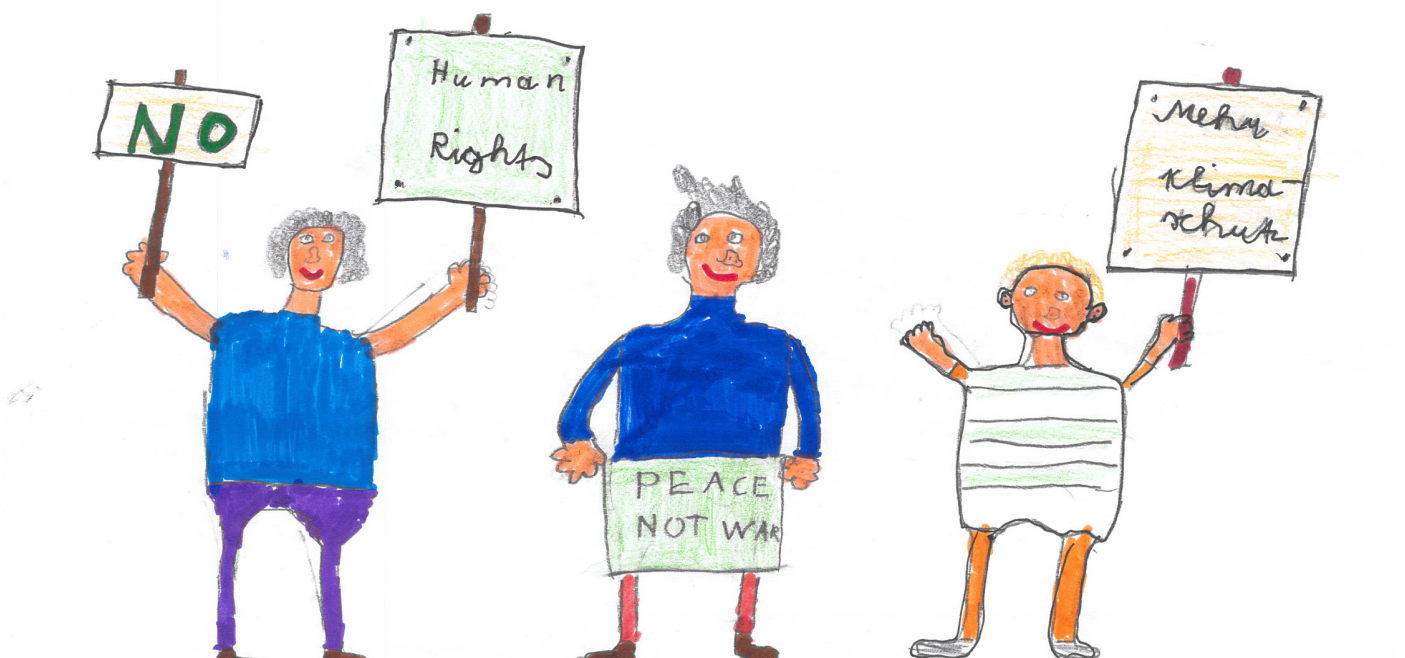 NO
Human
Rights
PEACE
NOT WAR
Mehr
Klima-
schutz